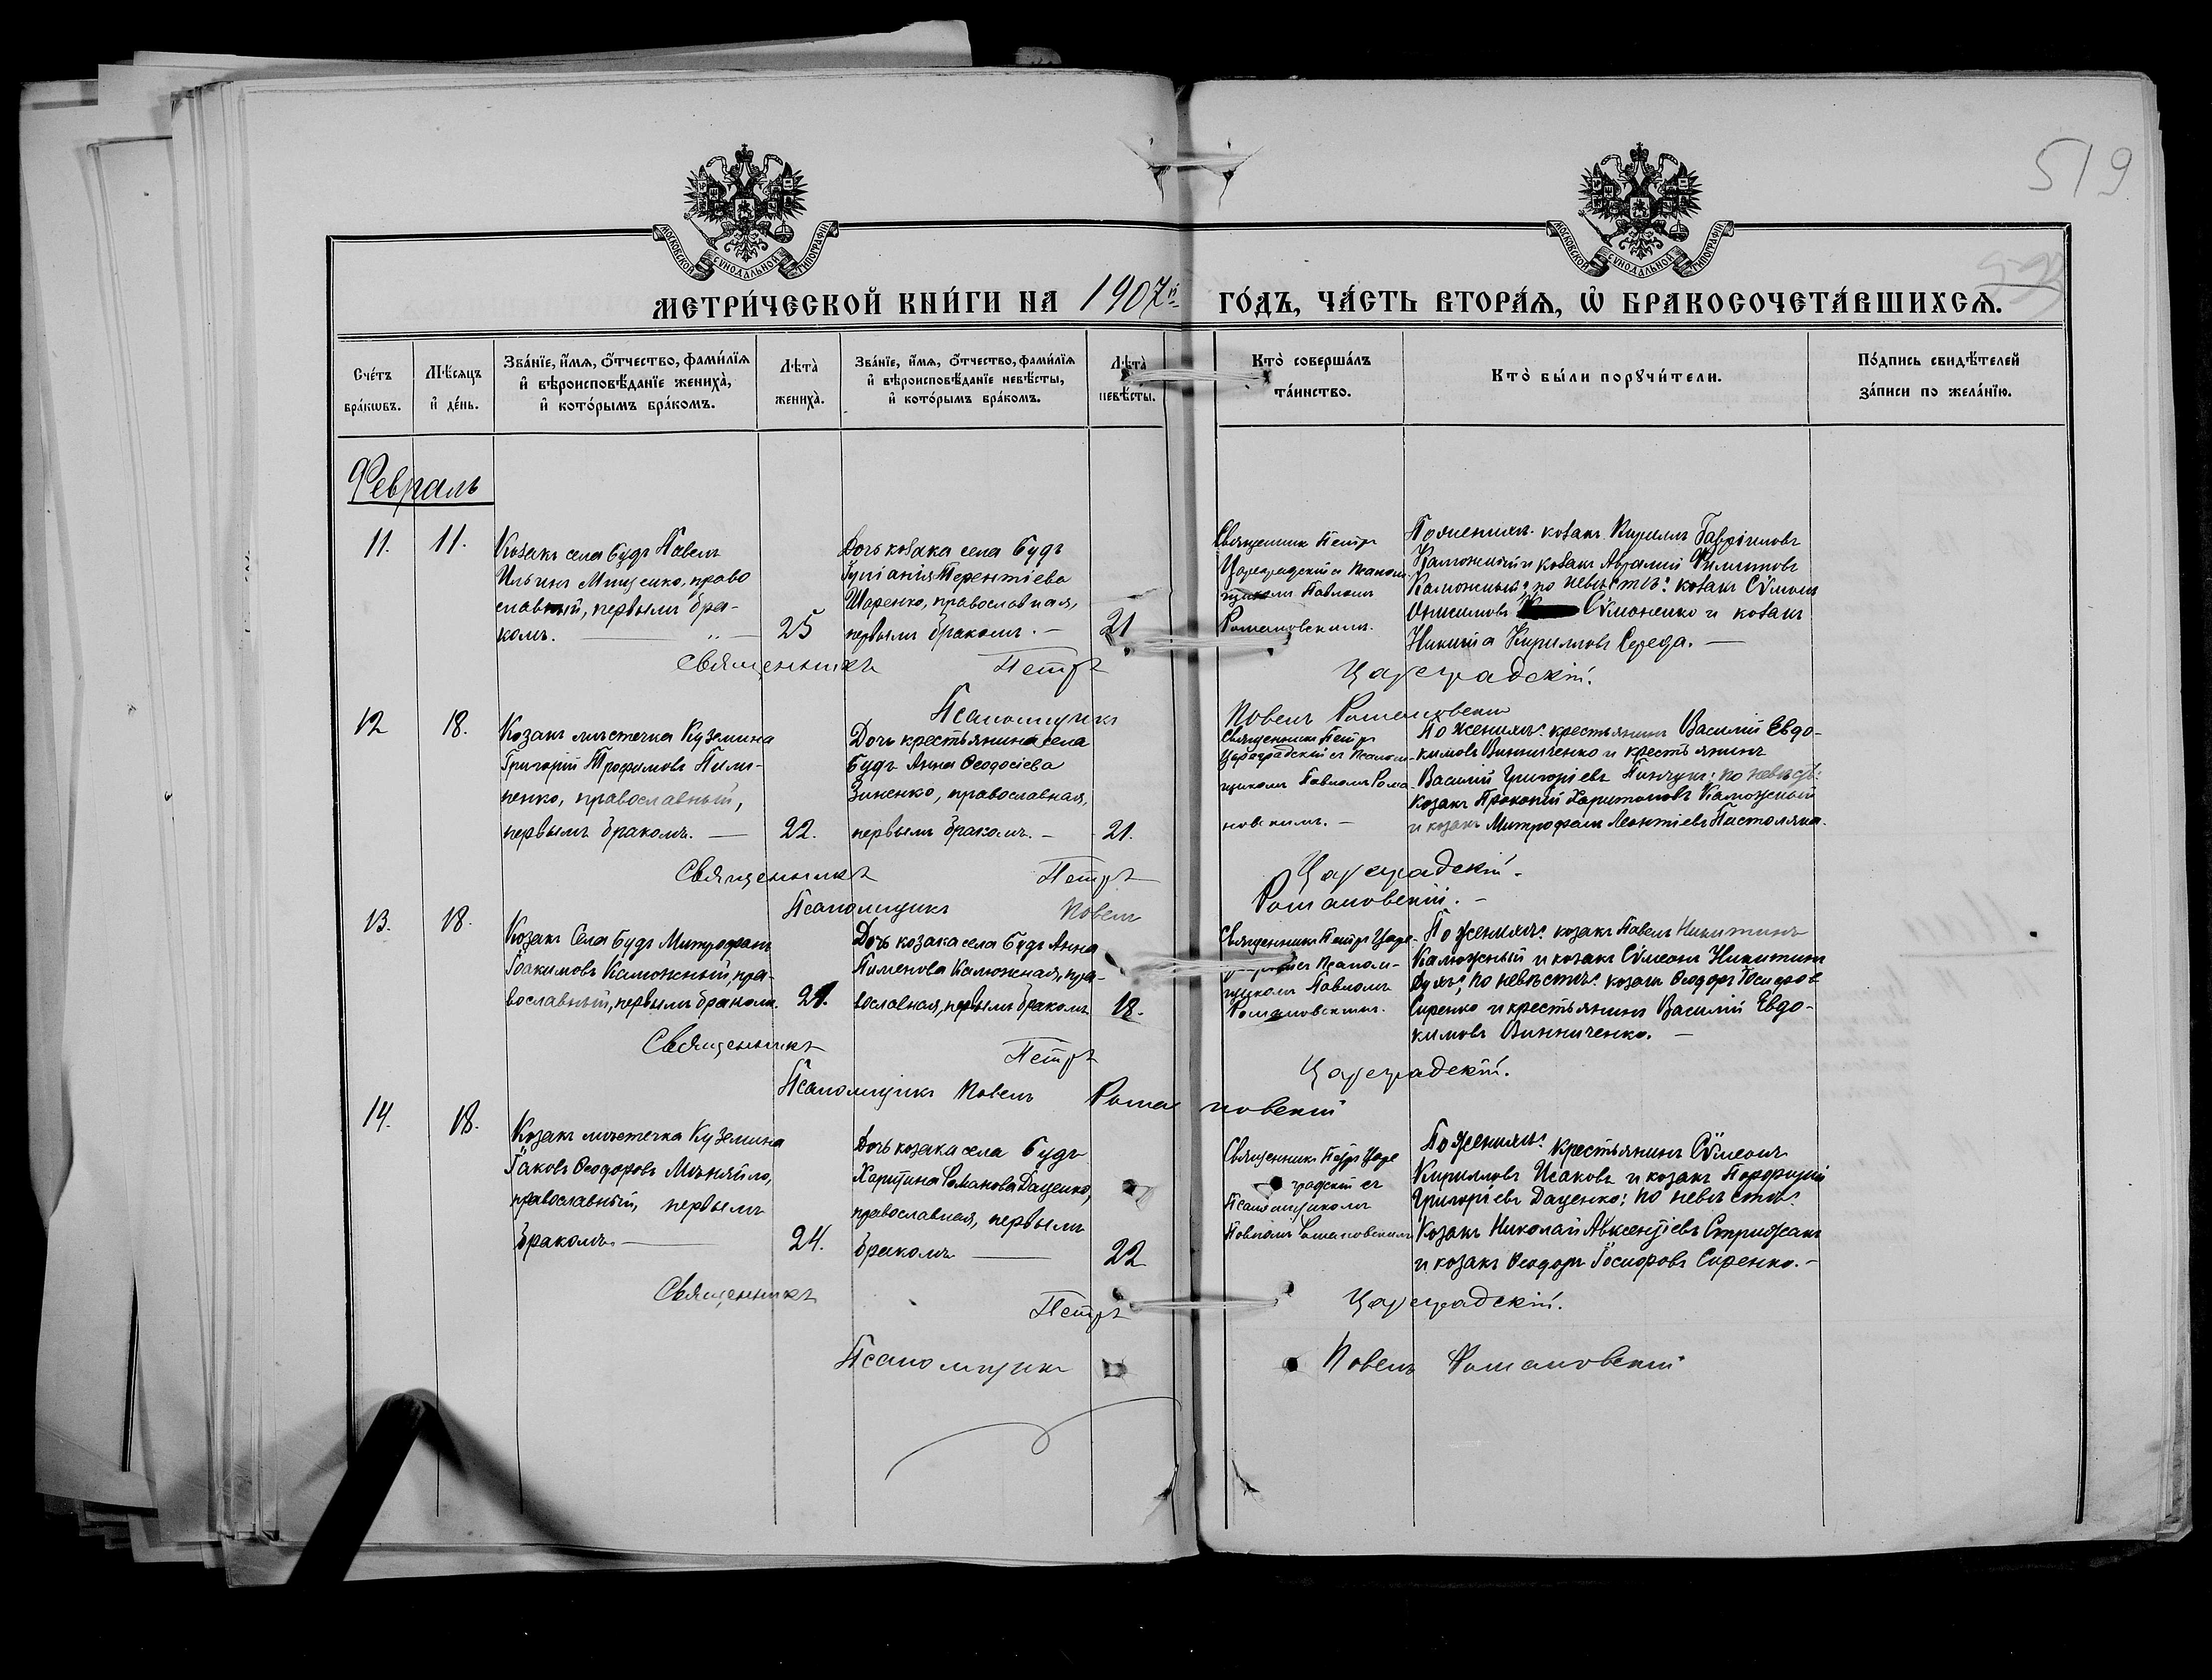 519
МОСКОВСКОЙ СѴНОДАЛЬНОЙ ТИПОГРАФІИ
МОСКОВСКОЙ СѴНОДАЛЬНОЙ ТИПОГРАФІИ
МЕТРИ́ЧЕСКОЙ КНИ́ГИ НА 1907й ГО́ДЪ, ЧА́СТЬ ВТОРА́Я, Ѡ БРАКОСОЧЕТА́ВШИХСЯ.
Сче́тъ бра́кѡвъ.
Мѣ́сяцъ и де́нь.
Зва́нїе, и́мя, ѻ́тчество, фами́лїя и вѣроисповѣ́данїе жениха̀, и кото́рымъ бра́комъ.
Лѣта̀ жениха̀.
Зва́нїе, и́мя, ѻ́тчество, фами́лїя и вѣроисповѣ́данїе невѣ́сты, и кото́рымъ бра́комъ.
Лѣта̀ невѣ́сты.
Кто̀ соверша́лъ та́инство.
Кто̀ бы́ли порꙋчи́тели.
По́дпись свидѣ́телей за́писи по жела́нїю.
Февраль
11.
11.
Козакъ села Будъ Павелъ
Ильинъ Мищенко, право
славный, первымъ бра-
комъ.
25
Дочь козака села Будъ
Іуліанія Терентіева
Шаренко, православная,
первымъ бракомъ. -
21
Священник Петръ
Цареградскій съ Псалом
щикомъ Павломъ
Романовскимъ.
По женихѣ: козакъ Кириллъ Гавріиловъ
Калюжный и козакъ Авраамій Филиповъ
Калюжный; по невѣстѣ: козакъ Сѵмеонъ
Онисимовъ Сѵмоненко и козакъ
Никита Кирилловъ Середа. —
Священникъ Петръ Цареградскій.
Псаломщикъ Павелъ Романовскій
12
18.
Козакъ мѣстечка Куземина
Григорій Трофимовъ Пили-
пенко, православный,
первымъ бракомъ. —
22.
Дочь крестьянина села
Будъ Анна Ѳеодосіева
Зиненко, православная,
первымъ бракомъ. -
21.
Священникъ Петръ
Цареградскій съ Псалом-
щикомъ Павломъ Рома-
новскимъ. —
По женихѣ: крестьянинъ Василій Евдо-
кимовъ Винниченко и крестьянинъ
Василій Григоріевъ Пинчукъ; по невѣстѣ:
козакъ Прокопій Харитоновъ Калюжный
и козакъ Митрофанъ Леонтіевъ
Священникъ Петръ Цареградскій.
Псаломщикъ Павелъ Романовскій. -
13.
18.
Козакъ села Будъ Митрофанъ
Іоакимовъ Калюжный, пра-
вославный, первымъ бракомъ.
Дочь козака села Будъ Анна
Пименова Калюжная, пра-
вославная, первымъ бракомъ
18.
Священникъ Петръ Царе-
градскій съ Псалом-
щикомъ Павломъ
Романовскимъ.
По женихѣ: козакъ Павелъ Никитинъ
Калюжный и козакъ Сѵмеонъ Никитинъ
по невѣстѣ: козакъ Ѳеодоръ Іосифовъ
Сиренко и крестьянинъ Василій Евдо-
кимовъ Винниченко. —
Священникъ Петръ Цареградскій.
Псаломщикъ Павелъ Романовскій
14.
18.
Козакъ мѣстечка Куземина
Іаковъ Ѳеодоровъ Мѣняйло,
православный, первымъ
бракомъ. —
24.
Дочь козака села Будъ
Харитина Романова Даценко,
православная, первымъ
бракомъ —
22
Священникъ Петръ Царе
градскій съ
Псаломщикомъ
Павломъ Романовскимъ
По женихѣ: крестьянинъ Сѵмеонъ
Кирилловъ Исаковъ и козакъ Порфирій
Григоріевъ Даценко; по невѣстѣ:
Козакъ Николай Авксентіевъ Стрижакъ
и козакъ Ѳеодоръ Іосифовъ Сиренко. -
Священникъ Петръ Цареградскій.
Псаломщикъ Павелъ Романовскій